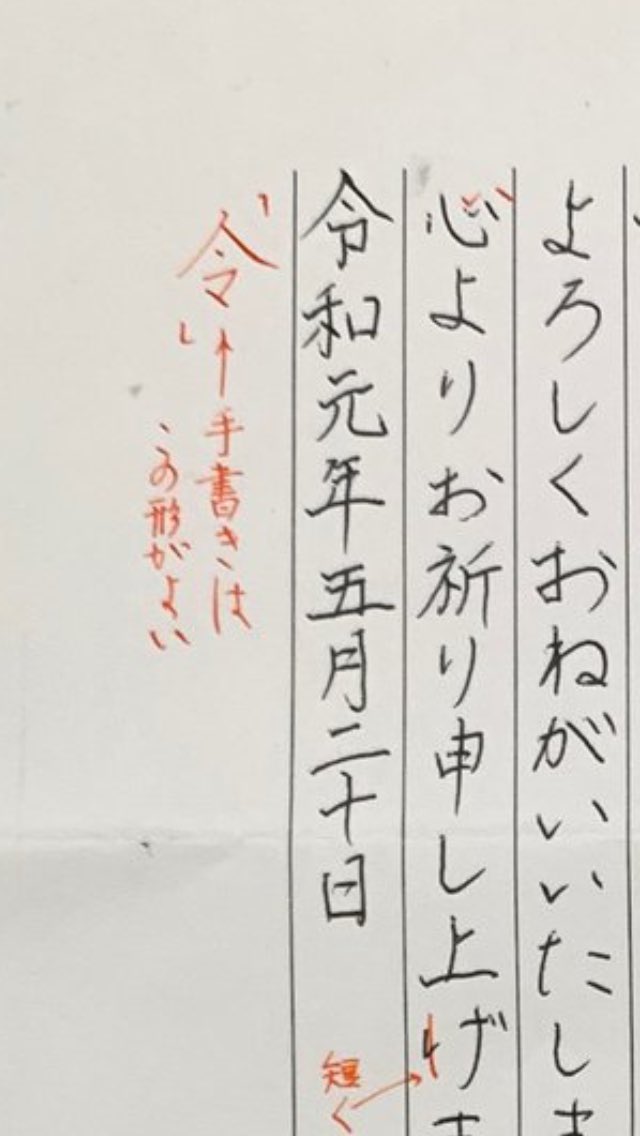 よろしくおねがいいたしま
心よりお祈り申し上げま
短く
令和元年五月二十日
令
手書きは
この形がよい